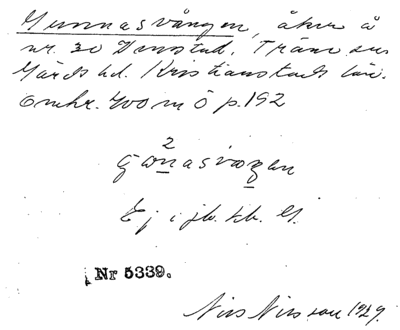 Gunnasvången, åker å
nr. 30 Önnstad. Träne sn
Gärds hd. Kristianstads län.
Omkr. 400 m Ö p. 192
2
gɯnasvaŋen
Ej i jb. hb. G.
Nr 5339.
Nils Nilsson 1929.